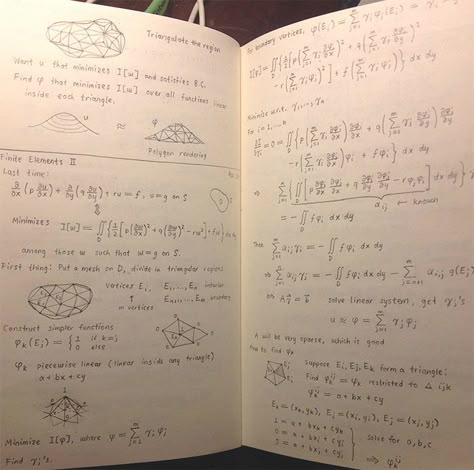 Triangulate the region
Want u that minimizes I[w] and satisfies B.C.
Find φ that minimizes I[w] over all functions linear
inside each triangle.
u
≈
φ
Polygon rendering
Finite Elements II
Last time:
∂/∂x (p ∂u/∂x) + ∂/∂y (q ∂u/∂y) + ru = f, u=g on S
D
S
⇕
Minimizes I[w] = ∬_D {½[p(∂w/∂x)² + q(∂w/∂y)² - rw²] + fw} dx dy
among those w such that w=g on S.
First thing: Put a mesh on D, divide in triangular regions
vertices E₁, ... Eₙ interior
Eₙ₊₁, ... Eₘ boundary
m vertices
Construct simpler functions
φₖ(Eⱼ) = { 1 if k=j
0 else
φₖ piecewise linear (linear inside any triangle)
a + bx + cy
Minimize I[φ], where φ = Σⱼ₌₁ᵐ γⱼ φⱼ
Find γⱼ's.
For boundary vertices, φ(Eᵢ) = Σⱼ₌₁ᵐ γⱼ φⱼ(Eᵢ) = γᵢ
I[φ] = ∬_D {½[p(Σⱼ₌₁ᵐ γⱼ ∂φⱼ/∂x)² + q(Σⱼ₌₁ᵐ γⱼ ∂φⱼ/∂y)²
- r(Σⱼ₌₁ᵐ γⱼ φⱼ)²] + f(Σⱼ₌₁ᵐ γⱼ φⱼ)} dx dy
Minimize w.r.t. γ₁, ..., γₙ
For i = 1, ... n
∂I/∂γᵢ = 0 = ∬_D {p(Σⱼ₌₁ᵐ γⱼ ∂φⱼ/∂x) ∂φᵢ/∂x + q(Σⱼ₌₁ᵐ γⱼ ∂φⱼ/∂y) ∂φᵢ/∂y
- r(Σⱼ₌₁ᵐ γⱼ φⱼ) φᵢ + fφᵢ} dx dy
⇒ Σⱼ₌₁ᵐ {∬_D [p ∂φᵢ/∂x ∂φⱼ/∂x + q ∂φᵢ/∂y ∂φⱼ/∂y - rφᵢφⱼ] dx dy} γⱼ
αᵢⱼ ← known
= - ∬_D fφᵢ dx dy
Then Σⱼ₌₁ᵐ αᵢⱼ γⱼ = - ∬_D fφᵢ dx dy
⇒ Σⱼ₌₁ⁿ αᵢⱼ γⱼ = - ∬_D fφᵢ dx dy - Σⱼ₌ₙ₊₁ᵐ αᵢⱼ g(Eⱼ)
⇔ Aγ⃗ = b⃗ solve linear system, get γⱼ's
u ≈ φ = Σⱼ₌₁ᵐ γⱼ φⱼ
A will be very sparse, which is good
How to find φₖ
Suppose Eᵢ, Eⱼ, Eₖ form a triangle:
Find φₖⁱʲ = φₖ restricted to Δ ijk
φₖⁱʲ = a + bx + cy
Eₖ = (xₖ, yₖ), Eᵢ = (xᵢ, yᵢ), Eⱼ = (xⱼ, yⱼ)
1 = a + bxₖ + cyₖ
0 = a + bxᵢ + cyᵢ
0 = a + bxⱼ + cyⱼ
solve for a, b, c
⇒ φₖⁱʲ